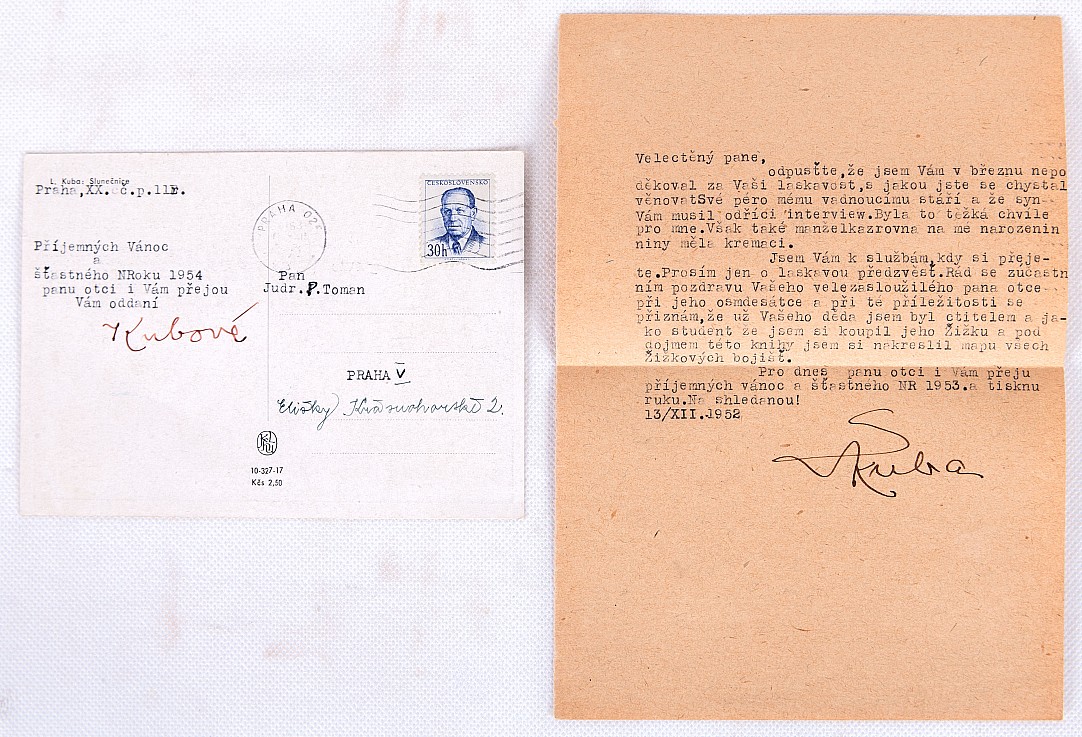 L. Kuba: Slunečnice
Praha,XX. č.p.11
Příjemných Vánoc
a
šťastného NRoku 1954
panu otci i Vám přejou
Vám oddaní
Kubové
PRAHA 02
ČESKOSLOVENSKO
30h
Pan
Judr.P.Toman
PRAHA V
Elišky Krásnohorské 2.
10-327-17
Kčs 2,50
Velectěný pane,
odpusťte,že jsem Vám v březnu nepo
děkoval za Vaši laskavost,s jakou jste se chystal
věnovatSvé péro mému vadnoucímu stáří a že syn
Vám musil odříci interview.Byla to těžká chvíle
pro mne.Však také manželkazrovna na mé narozenin
niny měla kremaci.
Jsem Vám k službám,kdy si přeje-
te.Prosím jen o laskavou předzvěst.Rád se zúčastn
ním pozdravu Vašeho velezasloužilého pana otce
při jeho osmdesátce a při té příležitosti se
přiznám,že už Vašeho děda jsem byl ctitelem a ja-
ko student že jsem si koupil jeho Žižku a pod
dojmem této knihy jsem si nakreslil mapu všech
Žižkových bojišť.
Pro dnes panu otci i Vám přeju
příjemných vánoc a šťastného NR 1953.a tisknu
ruku.Na shledanou!
13/XII.1952
Kuba